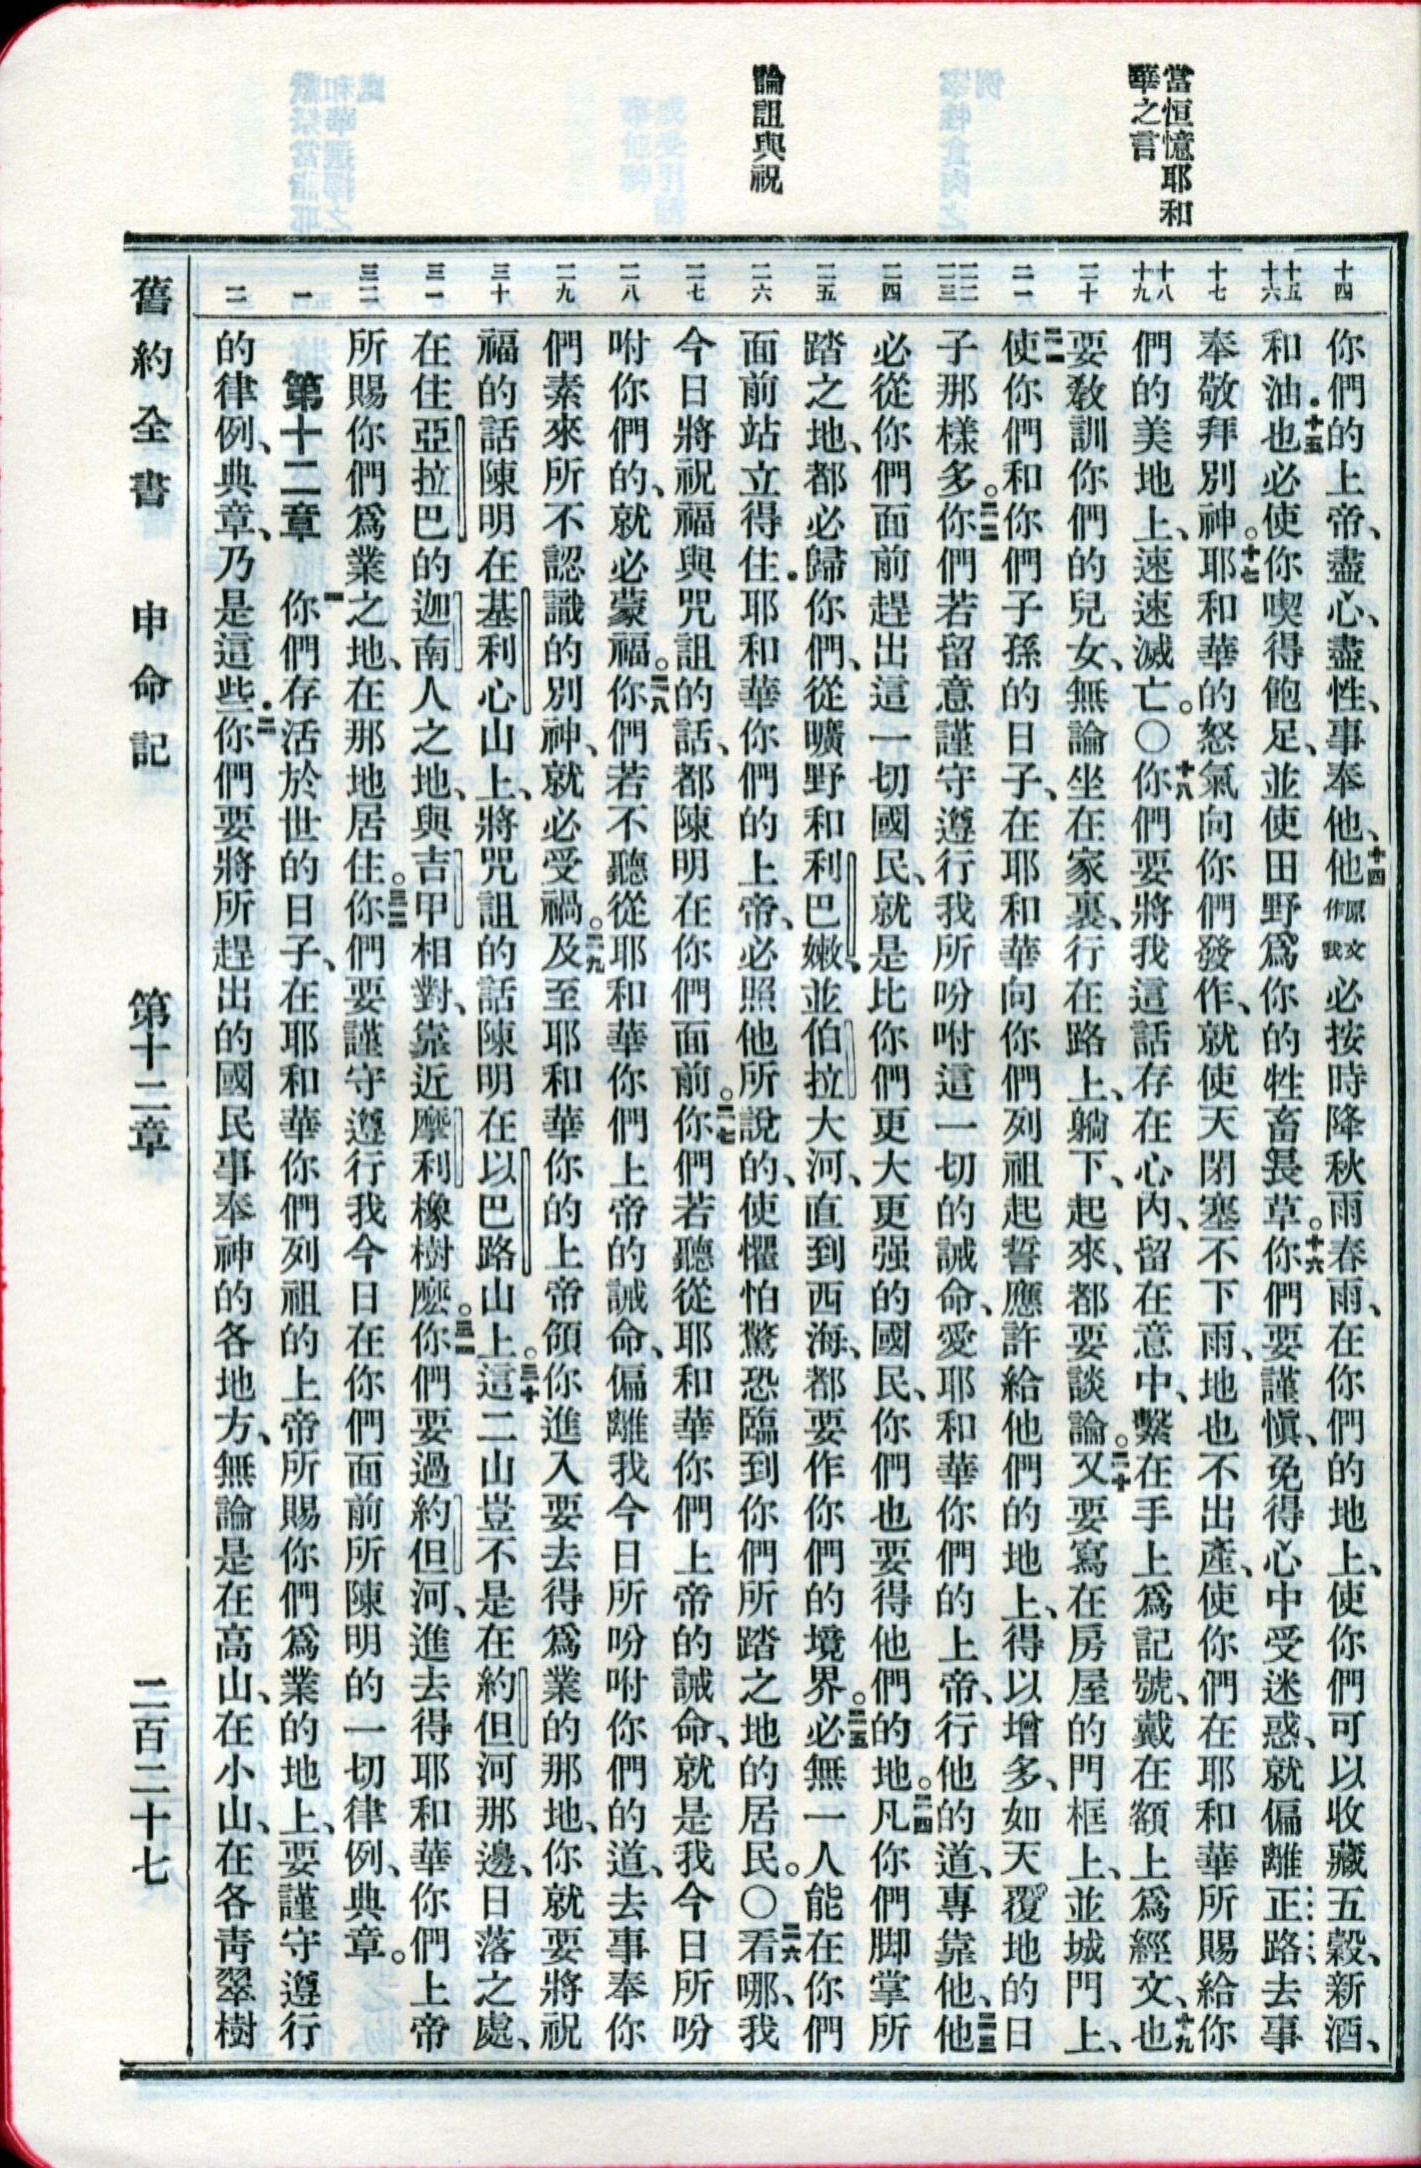 當恒憶耶和
華之言
論詛與祝
十四
十五
十六
十七
十八
十九
二十
二一
二二
二三
二四
二五
二六
二七
二八
二九
三十
三一
三二
一
二
你們的上帝、盡心、盡性、事奉他、十四他原文作我必按時降秋雨春雨、在你們的地上、使你們可以收藏五穀、新酒、
和油・十五也必使你喫得飽足、並使田野爲你的牲畜長草。十六你們要謹愼、免得心中受迷惑、就偏離正路、去事
奉敬拜別神。十七耶和華的怒氣向你們發作、就使天閉塞不下雨、地也不出產、使你們在耶和華所賜給你
們的美地上、速速滅亡。〇十八你們要將我這話存在心內、留在意中、繫在手上爲記號、戴在額上爲經文、十九也
要敎訓你們的兒女、無論坐在家裏、行在路上、躺下、起來、都要談論。二十又要寫在房屋的門框上、並城門上、
二一使你們和你們子孫的日子、在耶和華向你們列祖起誓應許給他們的地上、得以增多、如天覆地的日
子那樣多。二二你們若留意謹守遵行我所吩咐這一切的誡命、愛耶和華你們的上帝、行他的道、專靠他、二三他
必從你們面前趕出這一切國民、就是比你們更大更强的國民、你們也要得他們的地。二四凡你們脚掌所
踏之地、都必歸你們、從曠野和利巴嫩、並伯拉大河、直到西海、都要作你們的境界。二五必無一人能在你們
面前站立得住・耶和華你們的上帝、必照他所說的、使懼怕驚恐臨到你們所踏之地的居民。〇二六看哪、我
今日將祝福與咒詛的話、都陳明在你們面前。二七你們若聽從耶和華你們上帝的誡命、就是我今日所吩
咐你們的、就必蒙福。二八你們若不聽從耶和華你們上帝的誡命、偏離我今日所吩咐你們的道、去事奉你
們素來所不認識的別神、就必受禍。二九及至耶和華你的上帝領你進入要去得爲業的那地、你就要將祝
福的話陳明在基利心山上、將咒詛的話陳明在以巴路山上。三十這二山豈不是在約但河那邊、日落之處、
在住亞拉巴的迦南人之地、與吉甲相對、靠近摩利橡樹麽。三一你們要過約但河、進去得耶和華你們上帝
所賜你們爲業之地、在那地居住。三二你們要謹守遵行我今日在你們面前所陳明的一切律例、典章。
第十二章 一你們存活於世的日子、在耶和華你們列祖的上帝所賜你們爲業的地上、要謹守遵行
的律例、典章、乃是這些・二你們要將所趕出的國民事奉神的各地方、無論是在高山、在小山、在各靑翠樹
舊約全書 申命記 第十二章 二百二十七